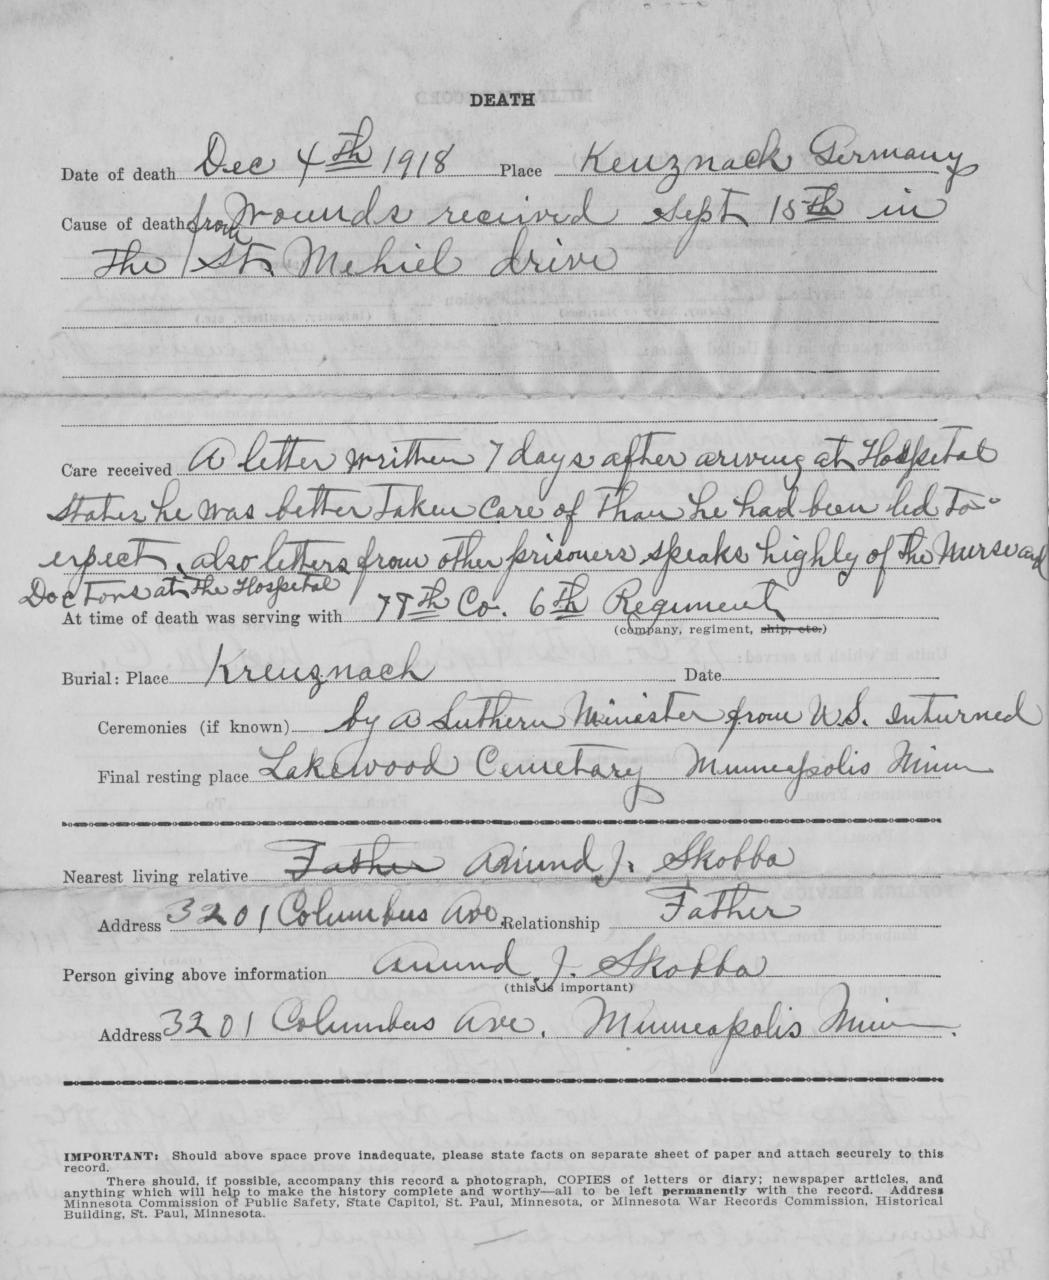 DEATH
Date of death Dec 4th 1918 Place Keuznack Germany
Cause of death from Wounds received Sept 15th in
the St. Mehiel drive
Care received A letter written 7 days after arriving at Hospital
states he was better taken care of than he had been led to
expect, also letters from other prisoners speaks highly of the Nurse and
Doctors at the Hospital
At time of death was serving with 78th Co. 6th Regiment
(company, regiment, ship, etc.)
Burial: Place Kreuznach Date
Ceremonies (if known) by a Luthern Minister from U.S. Inturned
Final resting place Lakewood Cemetary Minneapolis Minn
Nearest living relative Father Anund J. Skobba
Address 3201 Columbus Ave. Relationship Father
Person giving above information Anund J. Skobba
(this is important)
Address 3201 Columbus Ave. Minneapolis Minn.
IMPORTANT: Should above space prove inadequate, please state facts on separate sheet of paper and attach securely to this
record.
There should, if possible, accompany this record a photograph, COPIES of letters or diary; newspaper articles, and
anything which will help to make the history complete and worthy—all to be left permanently with the record. Address
Minnesota Commission of Public Safety, State Capitol, St. Paul, Minnesota, or Minnesota War Records Commission, Historical
Building, St. Paul, Minnesota.